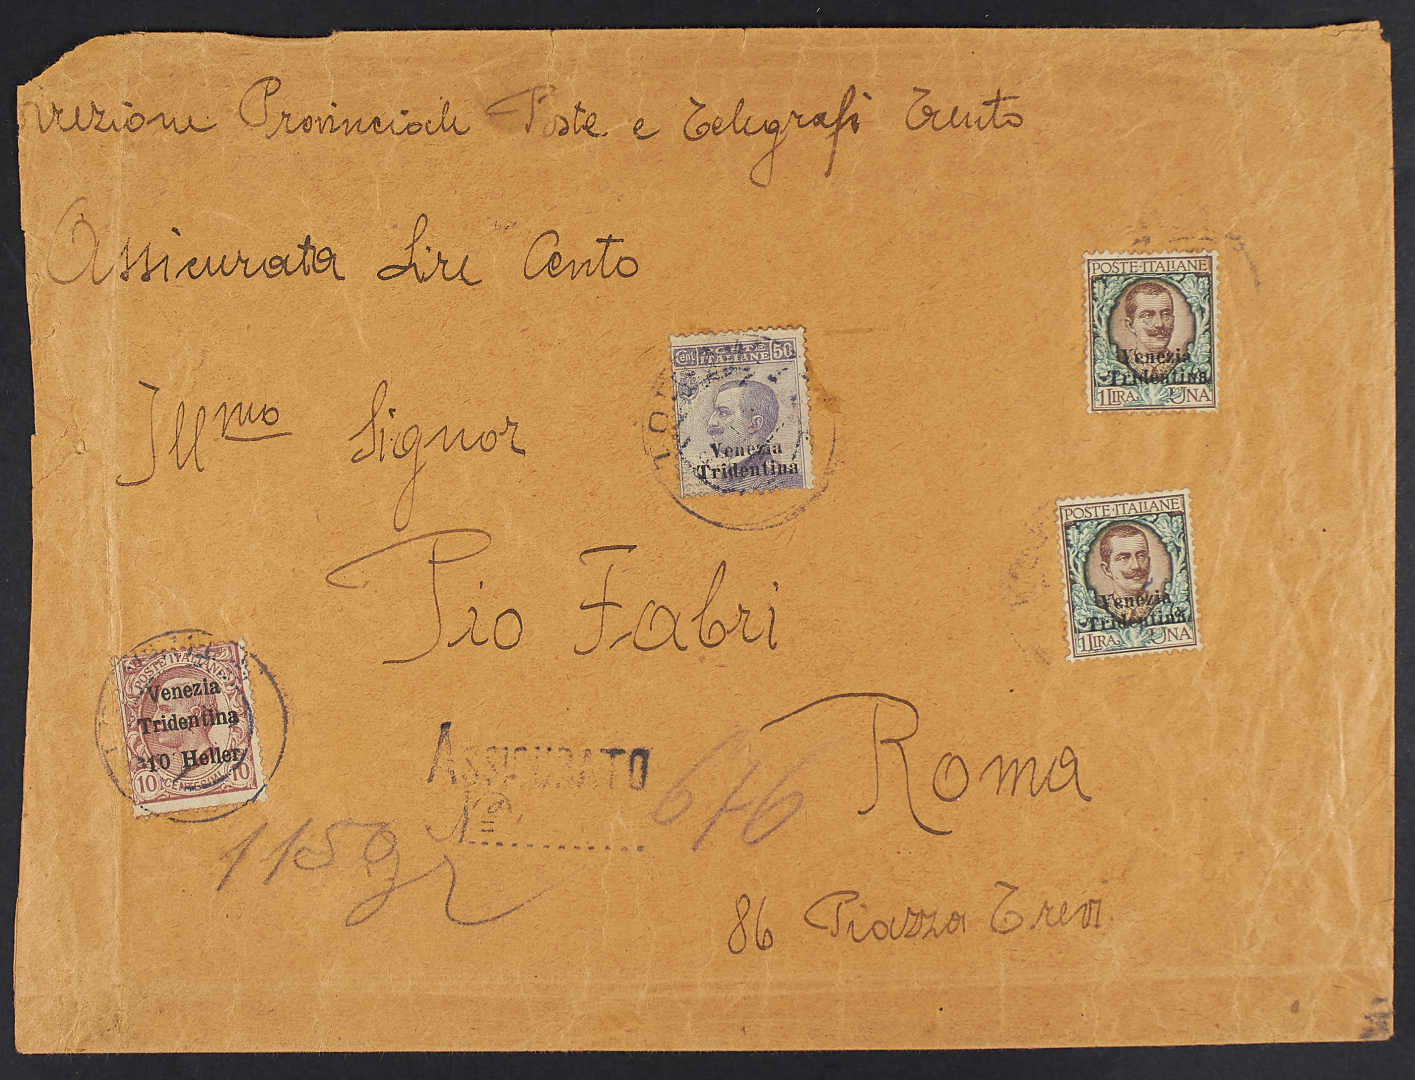 Provinciale Poste e Telegrafi Trento
Assicurata Lire Cento
POSTE·ITALIANE
Venezia
Tridentina
1 LIRA. UNA
Cent. POSTE 50
ITALIANE
Venezia
Tridentina
Ill.mo Signor
POSTE·ITALIANE
Venezia
Tridentina
1 LIRA. UNA
Pio Fabri
POSTE ITALIANE
Venezia
Tridentina
10 Heller
10 CENTESIMI 10
ASSICURATO
Nº 676
Roma
115 gr
86 Piazza Trevi